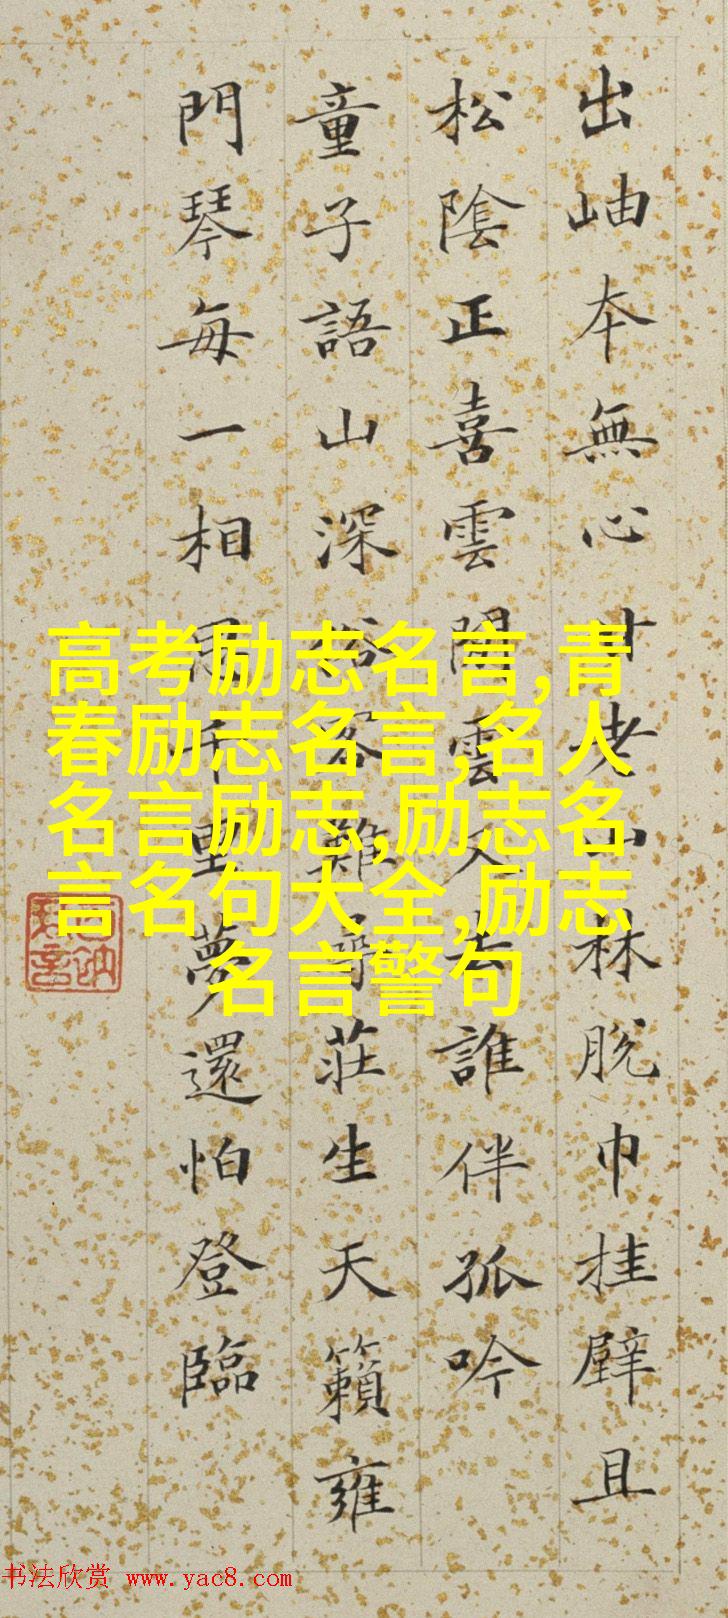 出岫本無心甘老山林脫巾挂壁且
松陰正喜雲閒雲又去誰伴孤吟
童子語山深俗客難尋莊生天籟雍
門琴每一相思千里夢還怕登臨
高考励志名言,青
春励志名言,名人
名言励志,励志名
言名句大全,励志
名言警句
书法欣赏 www.yac8.com